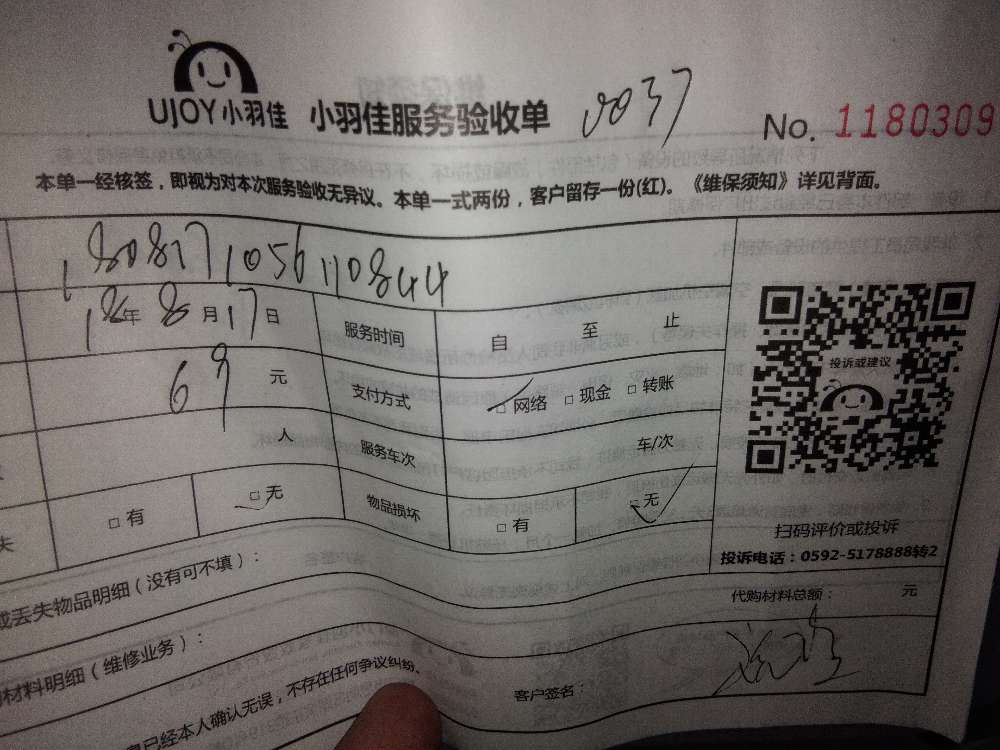 UJOY小羽佳 小羽佳服务验收单 0037 No. 1180309
本单一经核签，即视为对本次服务验收无异议。本单一式两份，客户留存一份(红)。《维保须知》详见背面。
1808171056110844
18年8月17日 服务时间 自 至 止
69元 支付方式 □网络 □现金 □转账
人 服务车次 车/次
失 □有 □无 物品损坏 □有 □无
投诉或建议
扫码评价或投诉
投诉电话：0592-5178888转2
或丢失物品明细（没有可不填）：
代购材料总额： 元
材料明细（维修业务）：
已经本人确认无误，不存在任何争议纠纷。
客户签名：